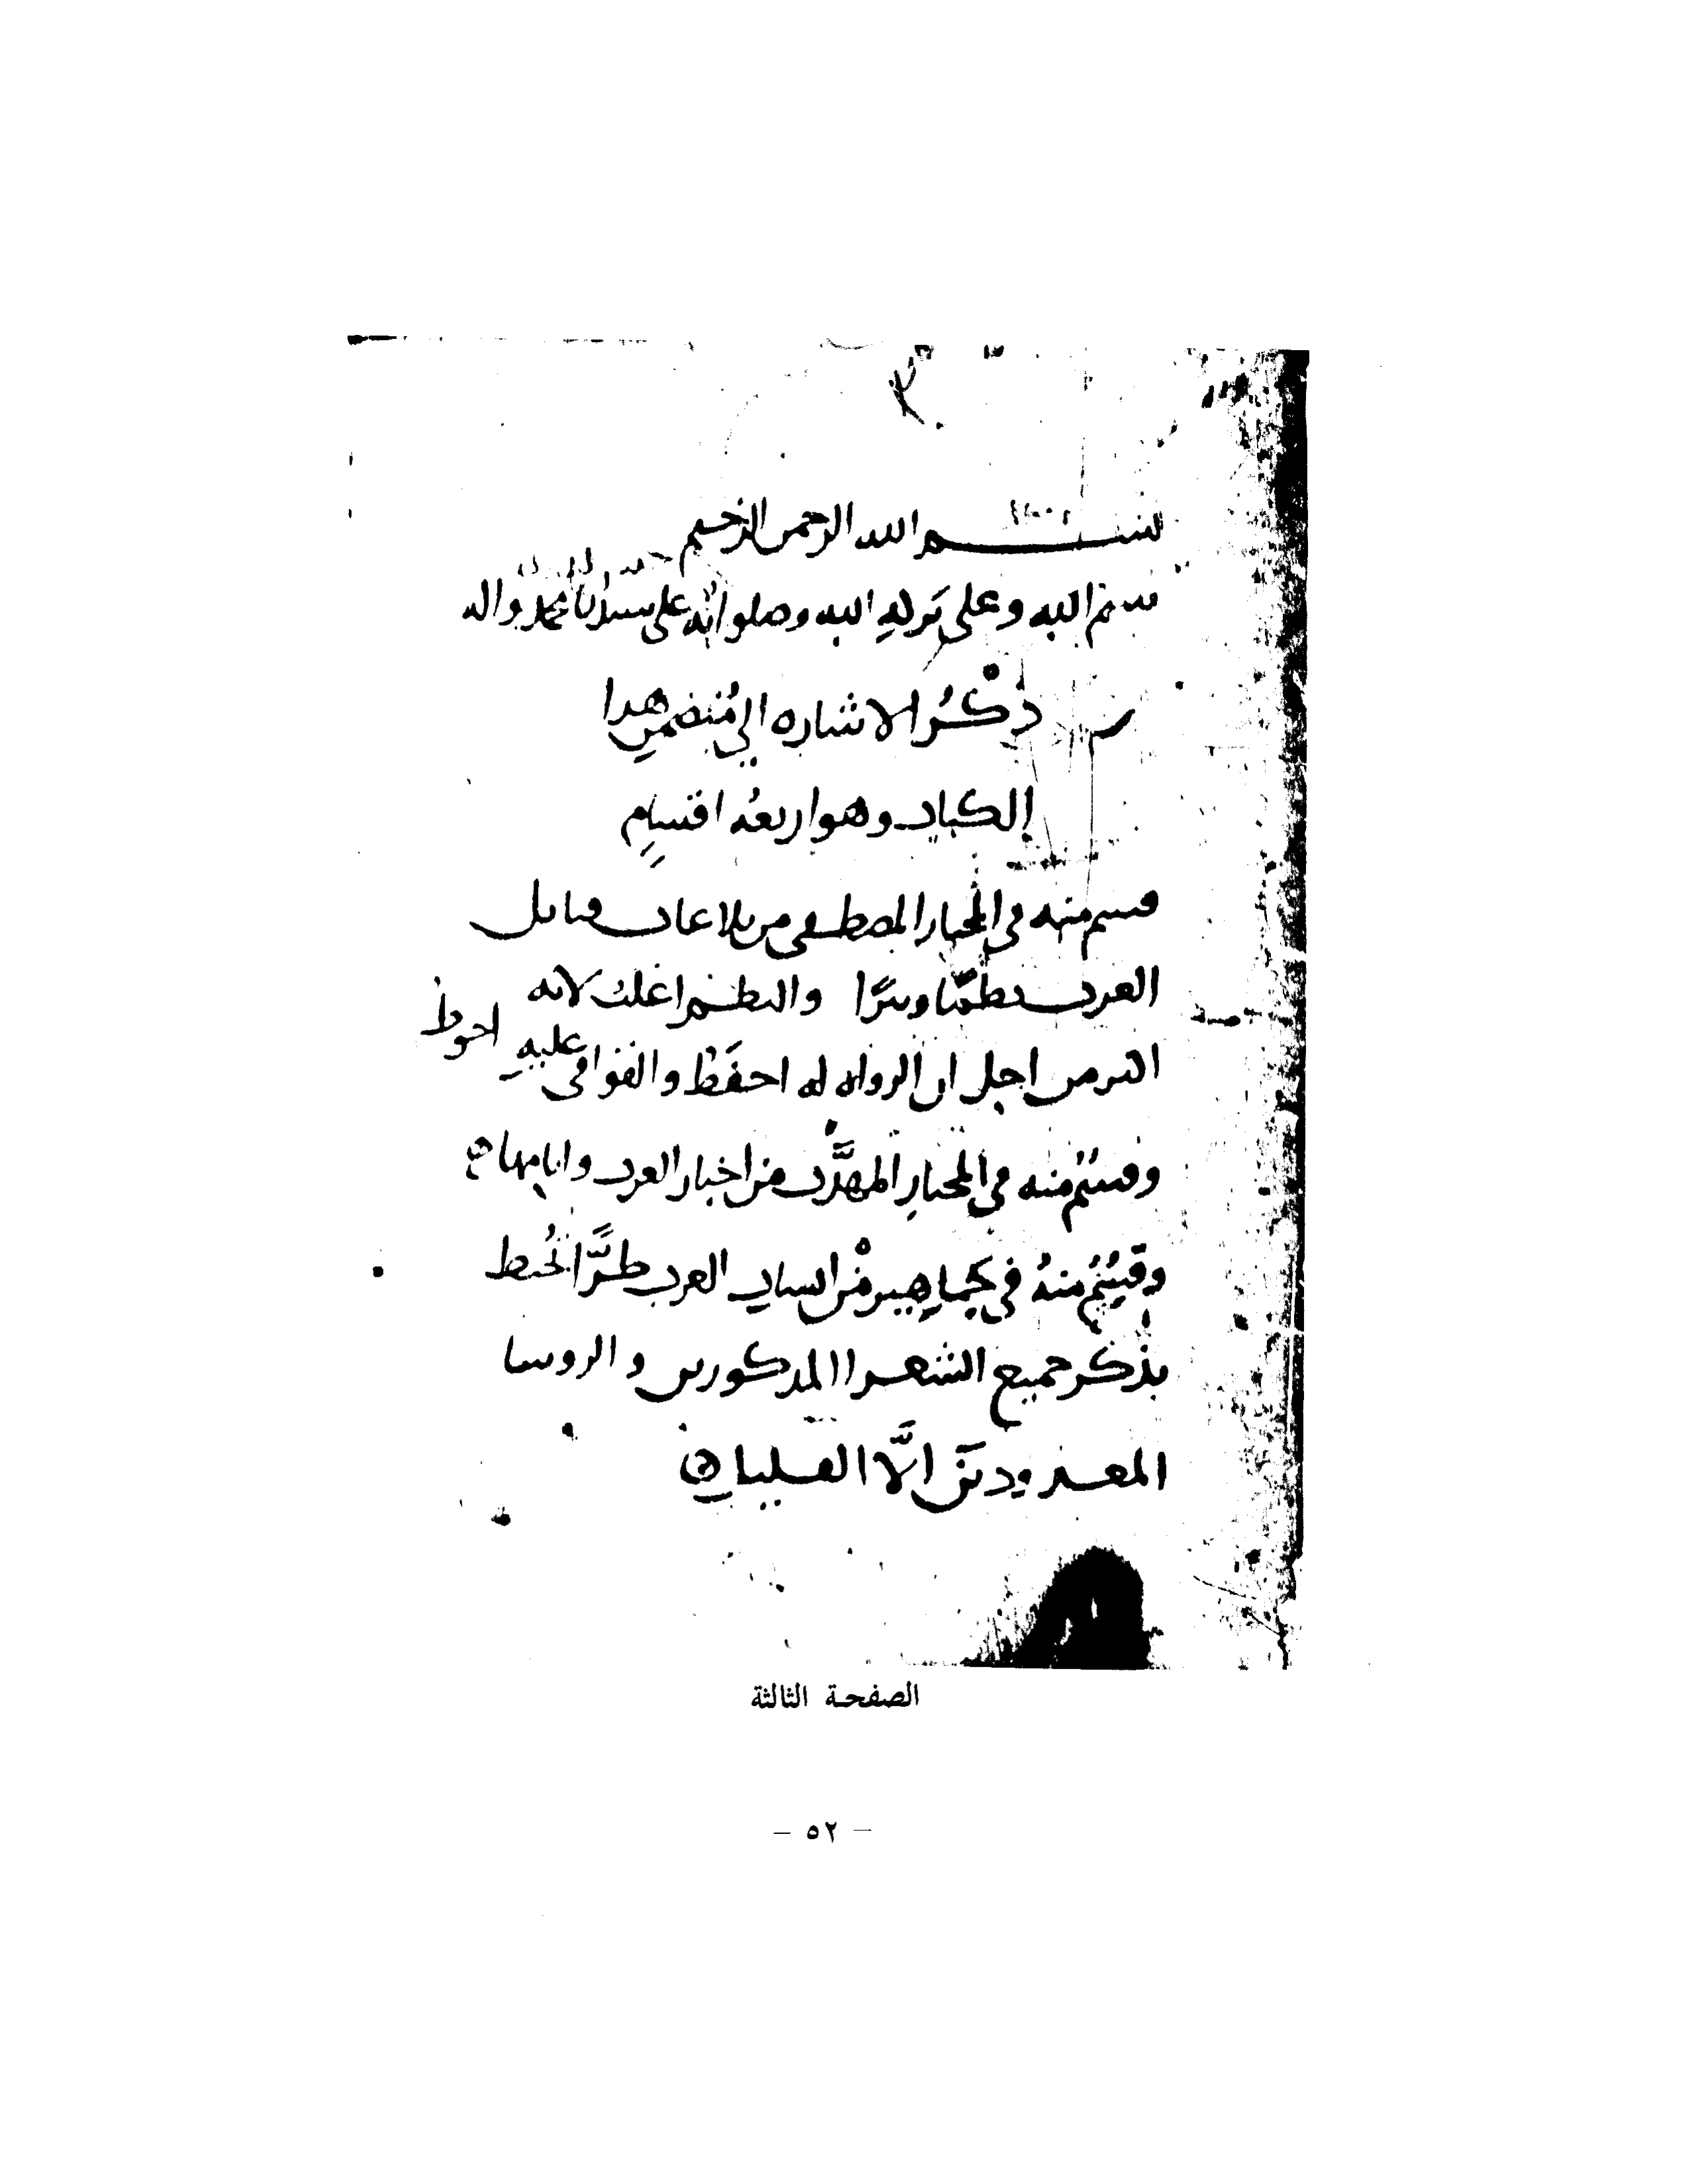 ٣
بسم الله الرحمن الرحيم
بسم الله وعلى بركه الله وصلواته على سيدنا محمد واله
ذكر الاشاره الى متضمن هدا
الكتاب وهو اربعه اقسام
قسم منه في المختار المصطفى من بلاغات قبايل
العرب نظما ونثرا والنظم اغلب لانه
اكثر من اجل ان الرواه له احفظ والقوافي عليه احوط
وقسم منه في المختار المهذب من اخبار العرب وايامها
وقسم منه في جماهير من انساب العرب طرا تحيط
بذكر جميع الشعرا المدكورين والروسا
المعدودين الا القليل
الصفحة الثالثة
– ٥٢ –